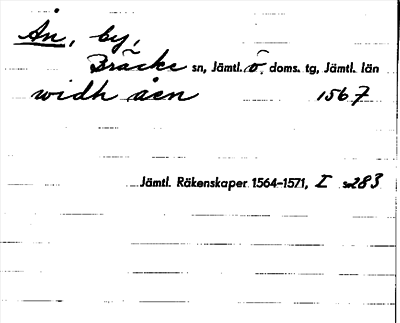 Ån, by,
Bräcke sn, Jämtl. ö. doms. tg, Jämtl. län
widh åen 1567
Jämtl. Räkenskaper 1564–1571, I s. 283